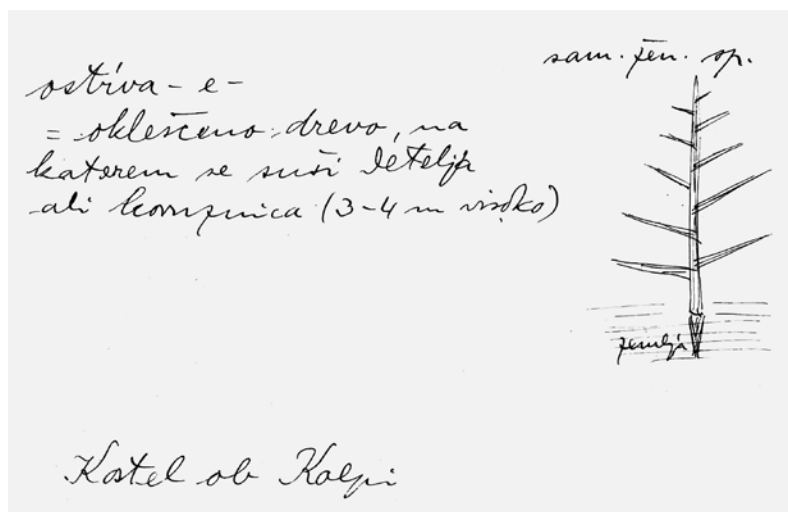 sam. žen. sp.
ostŕva - e -
= oklеščeno drevo, na
katerem se suši dételja
ali koruznica (3-4 m visoko)
zemlja
Kostel ob Kolpi